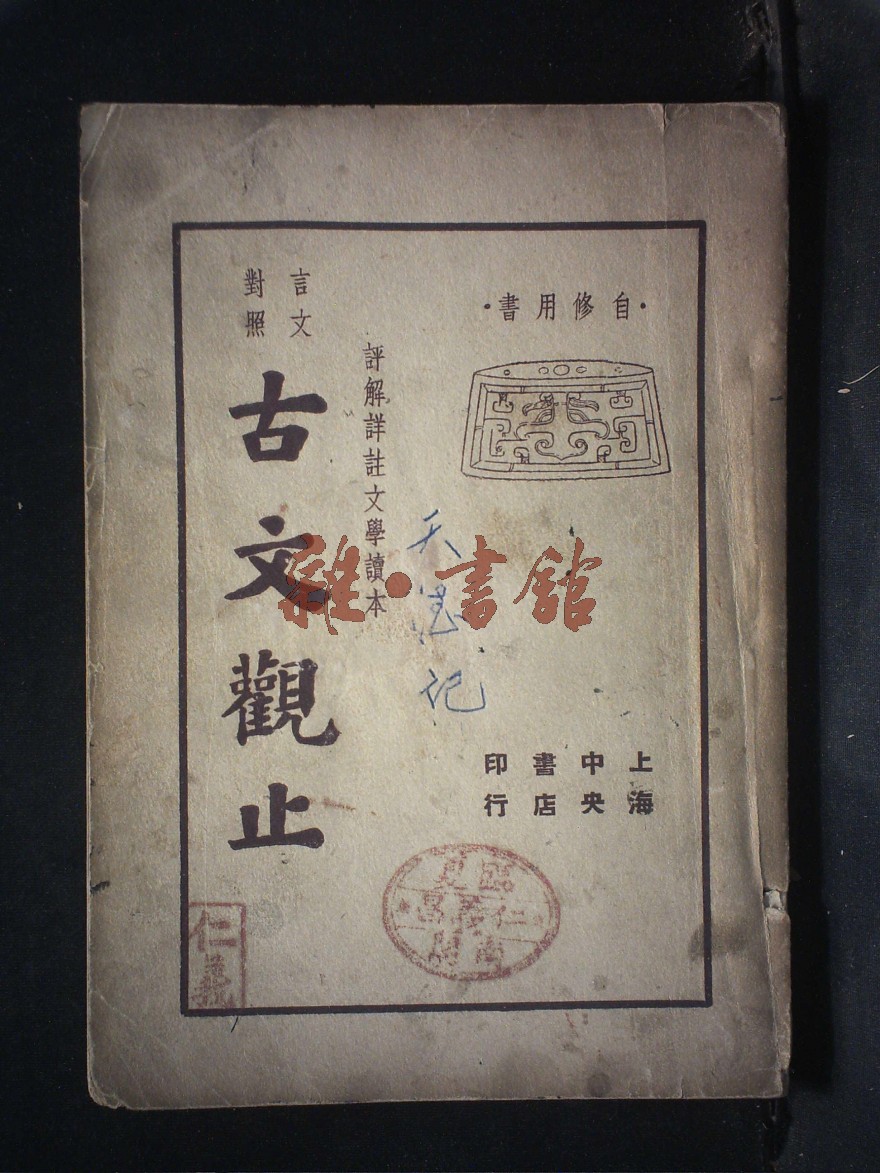 ·自修用書·
言文
對照
評解詳註文學讀本
古文觀止
上海
中央
書店
印行
天
記
雜·書舘
臨夏
仁義昌
仁義